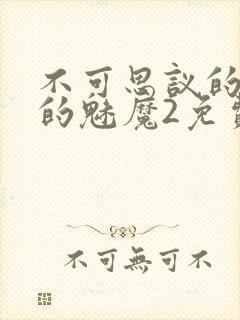 不可思议的
的魅魔2免
不可無可不